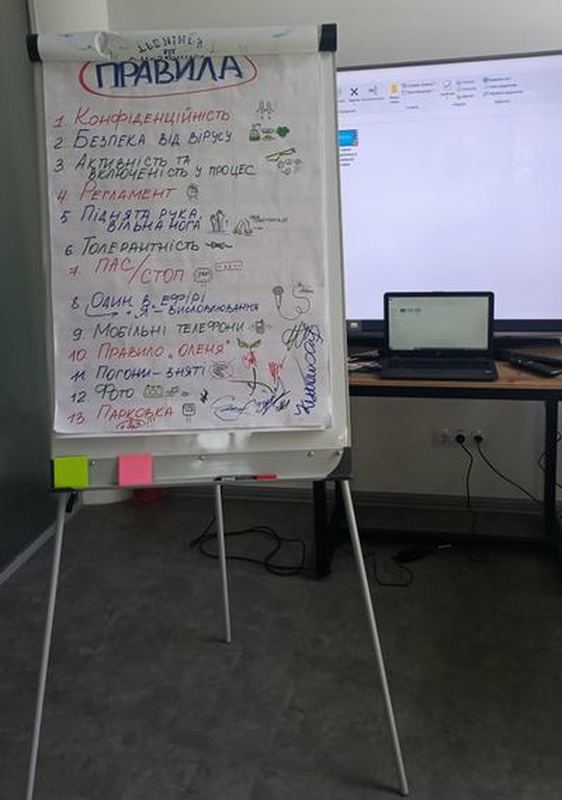 ПРАВИЛА
1. КОНФІДЕНЦІЙНІСТЬ
2. БЕЗПЕКА ВІД ВІРУСУ
3. АКТИВНІСТЬ ТА
ВКЛЮЧЕНІСТЬ У ПРОЦЕС
4. РЕГЛАМЕНТ
5. ПІДНЯТА РУКА,
ВІЛЬНА НОГА
6. ТОЛЕРАНТНІСТЬ
7. ПАС/СТОП
8. ОДИН В ЕФІРІ
"Я" - ВИСЛОВЛЮВАННЯ
9. МОБІЛЬНІ ТЕЛЕФОНИ
10. ПРАВИЛО „ОЛЕНЯ"
11. ПОГОНИ-ЗНЯТІ
12. ФОТО
13. ПАРКОВКА